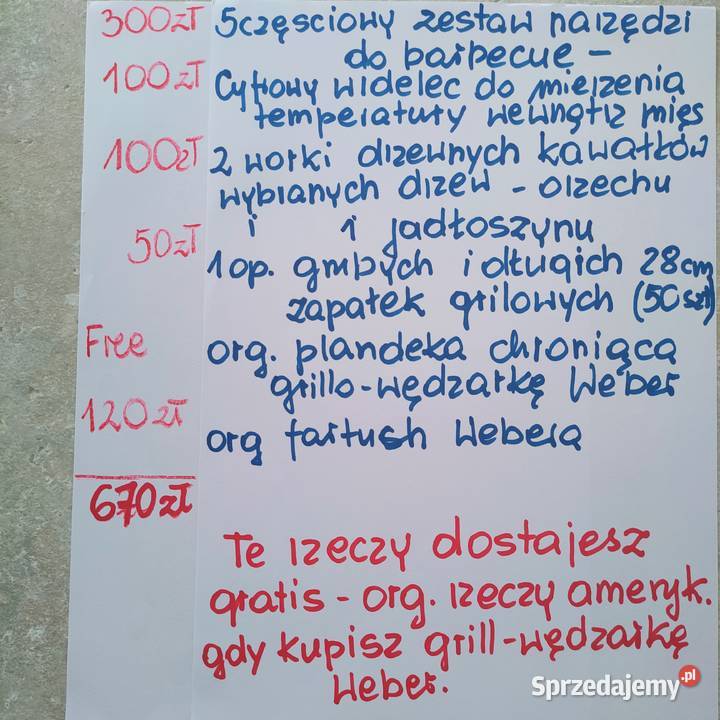 300zł 5częsciowy zestaw narzędzi
do barbecue –
100zł Cyfrowy widelec do mierzenia
temperatury wewnątrz mięs
100zł 2 worki drzewnych kawałków
wybranych drzew - orzechu
i i jadłoszynu
50zł 1 op. grubych i długich 28cm
zapałek grilowych (50szt)
Free org. plandeka chroniąca
grillo-wędzarkę Weber
120zł org fartush Webera
670zł
Te rzeczy dostajesz
gratis - org. rzeczy ameryk.
gdy kupisz grill-wędzarkę
Weber.
Sprzedajemy.pl